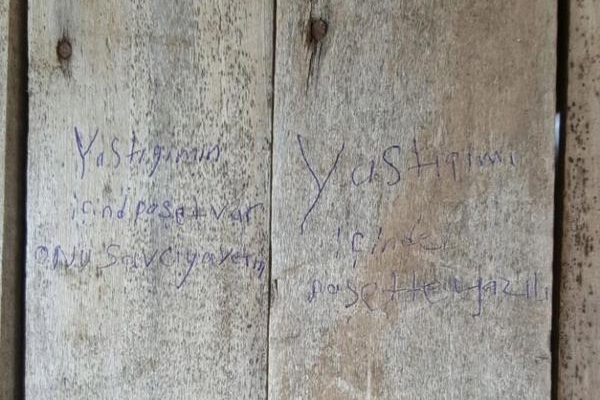 Yastıgımın
içind poşet var
onu savcıya verin
Yastıgımı
içinde
poşette yazılı